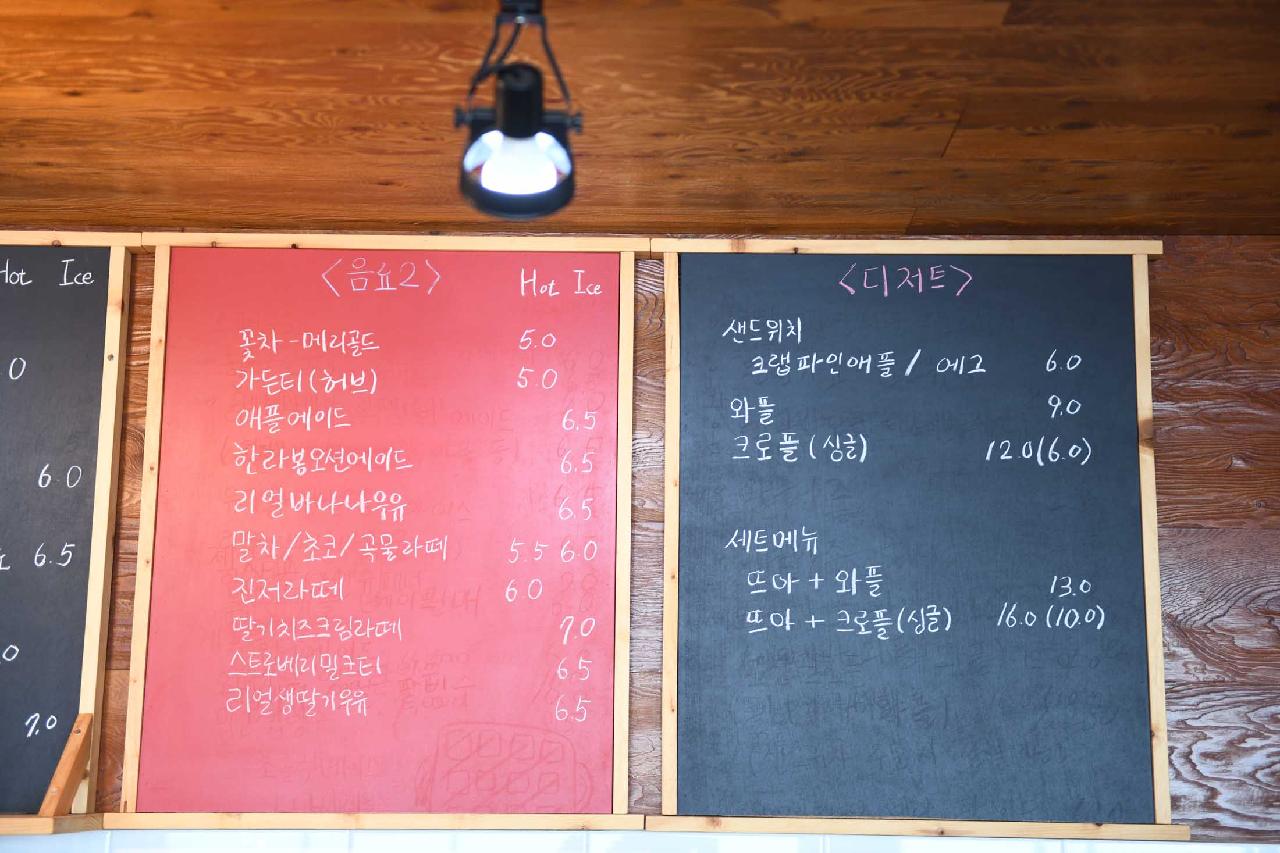 Hot Ice
0
6.0
6.5
.0
7.0
<음료2> Hot Ice
꽃차-메리골드 5.0
가든티(허브) 5.0
애플에이드 6.5
한라봉오션에이드 6.5
리얼바나나우유 6.5
말차/초코/곡물라떼 5.5 6.0
진저라떼 6.0
딸기치즈크림라떼 7.0
스트로베리밀크티 6.5
리얼생딸기우유 6.5
<디저트>
샌드위치
크랩파인애플/에그 6.0
와플 9.0
크로플(싱글) 12.0(6.0)
세트메뉴
뜨아+와플 13.0
뜨아+크로플(싱글) 16.0(10.0)